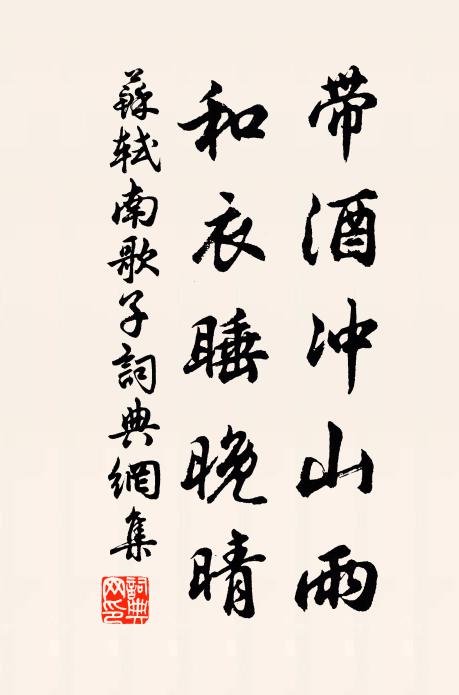 带酒冲山雨
和衣睡晚晴
蘇軾南歌子詞典網集
詞典网印